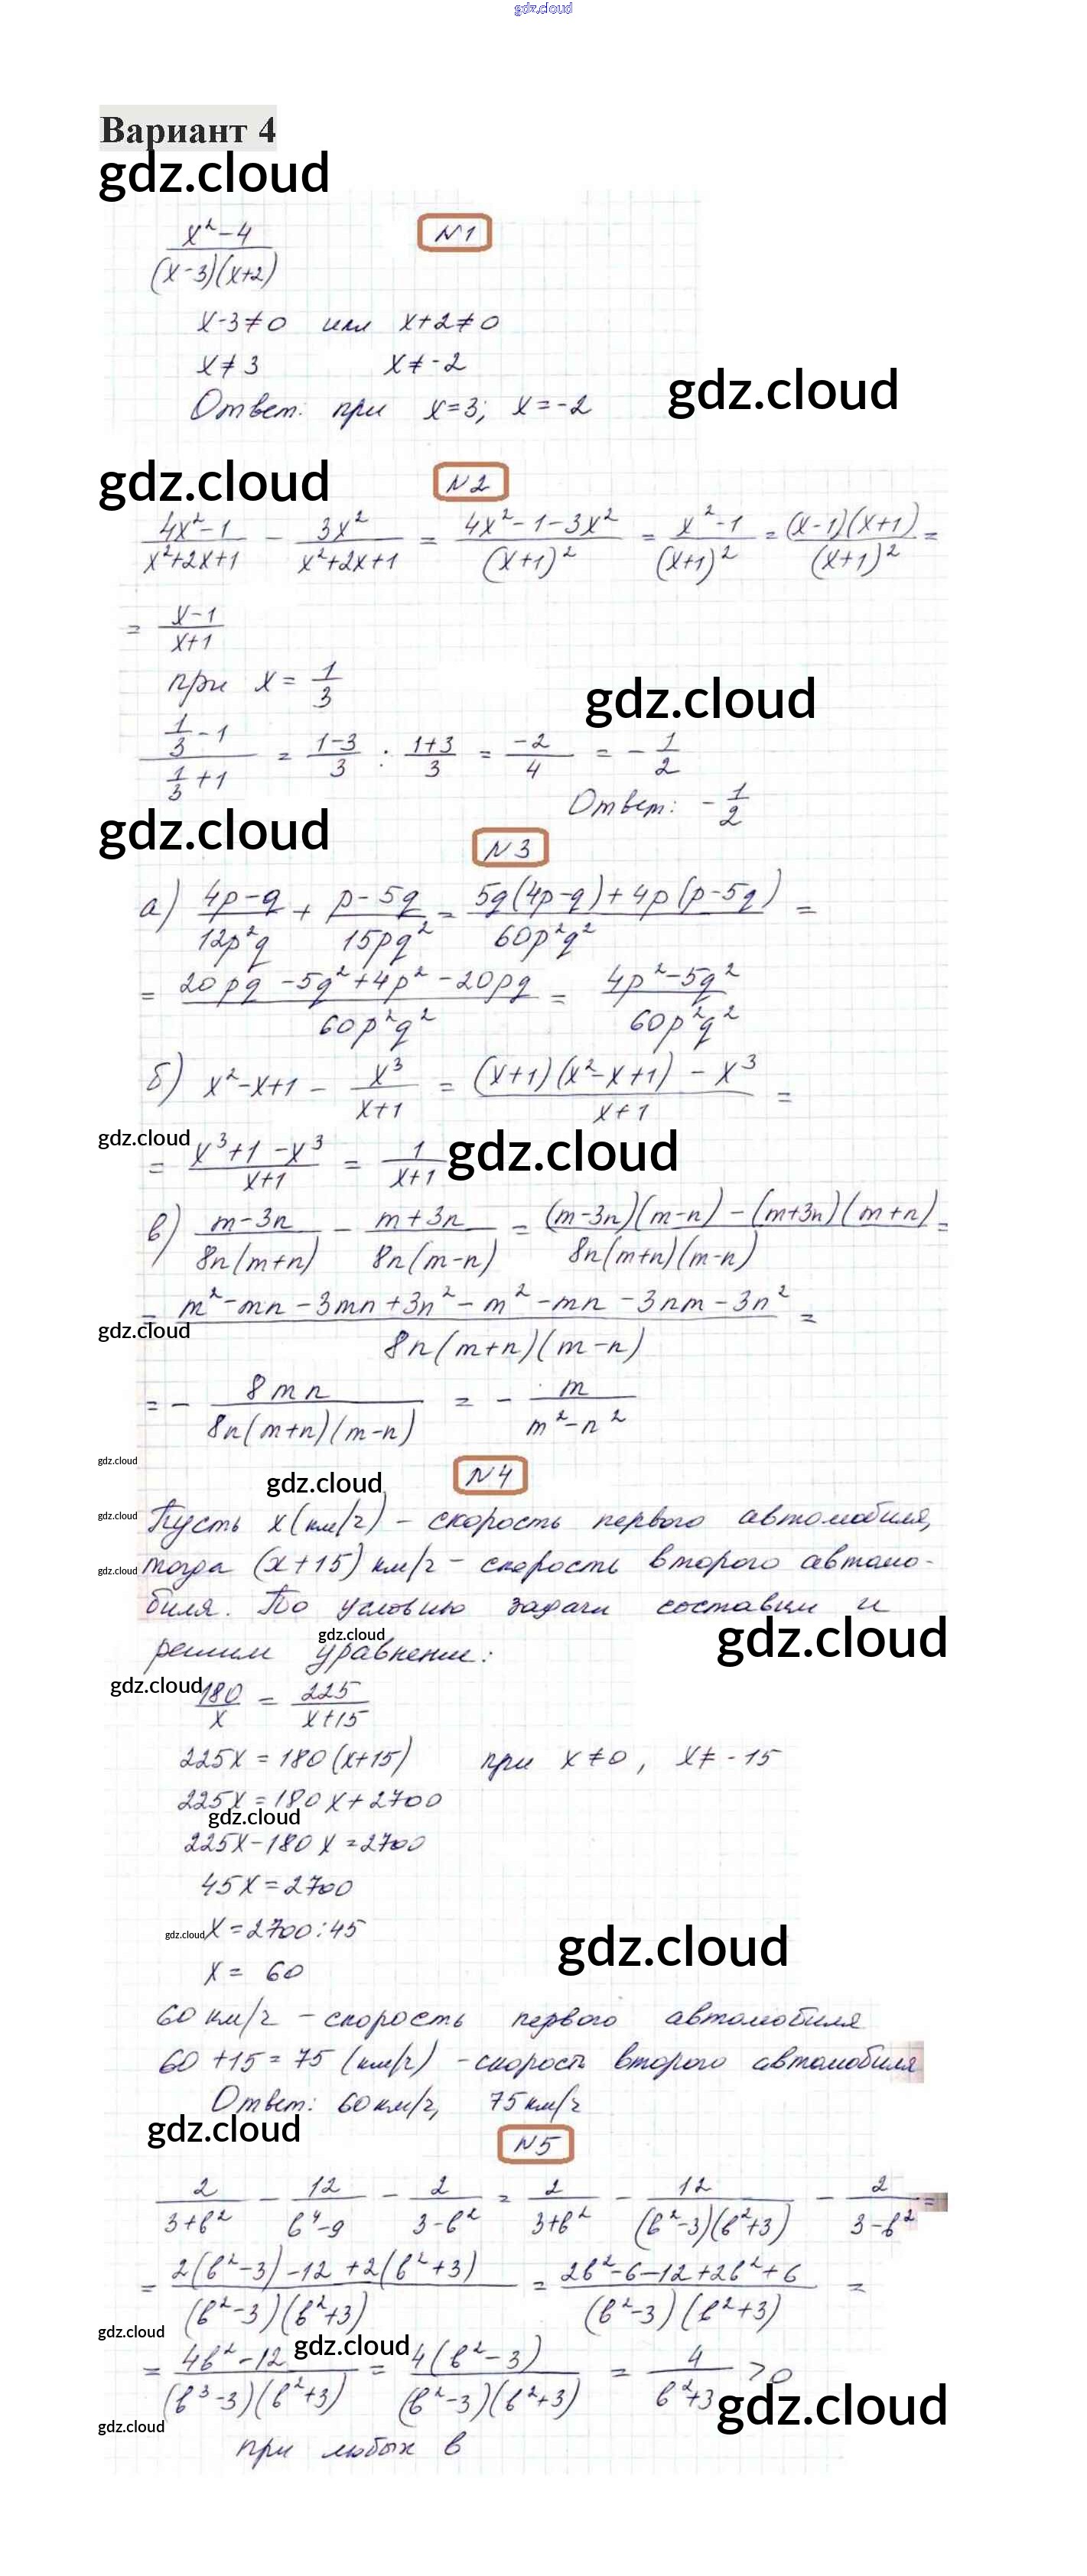 gdz.cloud
Вариант 4
gdz.cloud
N1
x²-4 / (x-3)(x+2)
x-3≠0 или x+2≠0
x≠3 x≠-2
Ответ: при x=3; x=-2
gdz.cloud
gdz.cloud
N2
4x²-1 / x²+2x+1 - 3x² / x²+2x+1 = 4x²-1-3x² / (x+1)² = x²-1 / (x+1)² = (x-1)(x+1) / (x+1)² =
= x-1 / x+1
при x = 1/3
gdz.cloud
1/3 -1 / 1/3 +1 = 1-3 / 3 : 1+3 / 3 = -2 / 4 = - 1/2
Ответ: - 1/2
gdz.cloud
N3
а) 4p-q / 12p²q + p-5q / 15pq² = 5q(4p-q)+4p(p-5q) / 60p²q² =
= 20pq -5q²+4p²-20pq / 60p²q² = 4p²-5q² / 60p²q²
б) x²-x+1 - x³ / x+1 = (x+1)(x²-x+1) - x³ / x+1 =
gdz.cloud
= x³+1-x³ / x+1 = 1 / x+1
gdz.cloud
в) m-3n / 8n(m+n) - m+3n / 8n(m-n) = (m-3n)(m-n)-(m+3n)(m+n) / 8n(m+n)(m-n) =
= m²-mn-3mn+3n²-m²-mn-3nm-3n² / 8n(m+n)(m-n) =
gdz.cloud
= - 8mn / 8n(m+n)(m-n) = - m / m²-n²
gdz.cloud
gdz.cloud
N4
gdz.cloud
Пусть x(км/ч) - скорость первого автомобиля,
gdz.cloud
тогда (x+15) км/ч - скорость второго автомо-
биля. По условию задачи составим и
gdz.cloud
gdz.cloud
решим уравнение:
gdz.cloud
180 / x = 225 / x+15
225x = 180(x+15) при x≠0, x≠-15
225x = 180x+2700
gdz.cloud
225x-180x=2700
45x=2700
gdz.cloud
x=2700:45
gdz.cloud
x= 60
60 км/ч - скорость первого автомобиля
60+15=75 (км/ч) - скорость второго автомобиля
Ответ: 60км/ч, 75км/ч
gdz.cloud
N5
2 / 3+b² - 12 / b⁴-9 - 2 / 3-b² = 2 / 3+b² - 12 / (b²-3)(b²+3) - 2 / 3-b² =
= 2(b²-3)-12+2(b²+3) / (b²-3)(b²+3) = 2b²-6-12+2b²+6 / (b²-3)(b²+3) =
gdz.cloud
gdz.cloud
= 4b²-12 / (b³-3)(b²+3) = 4(b²-3) / (b²-3)(b²+3) = 4 / b²+3 >0
gdz.cloud
gdz.cloud
при любых b